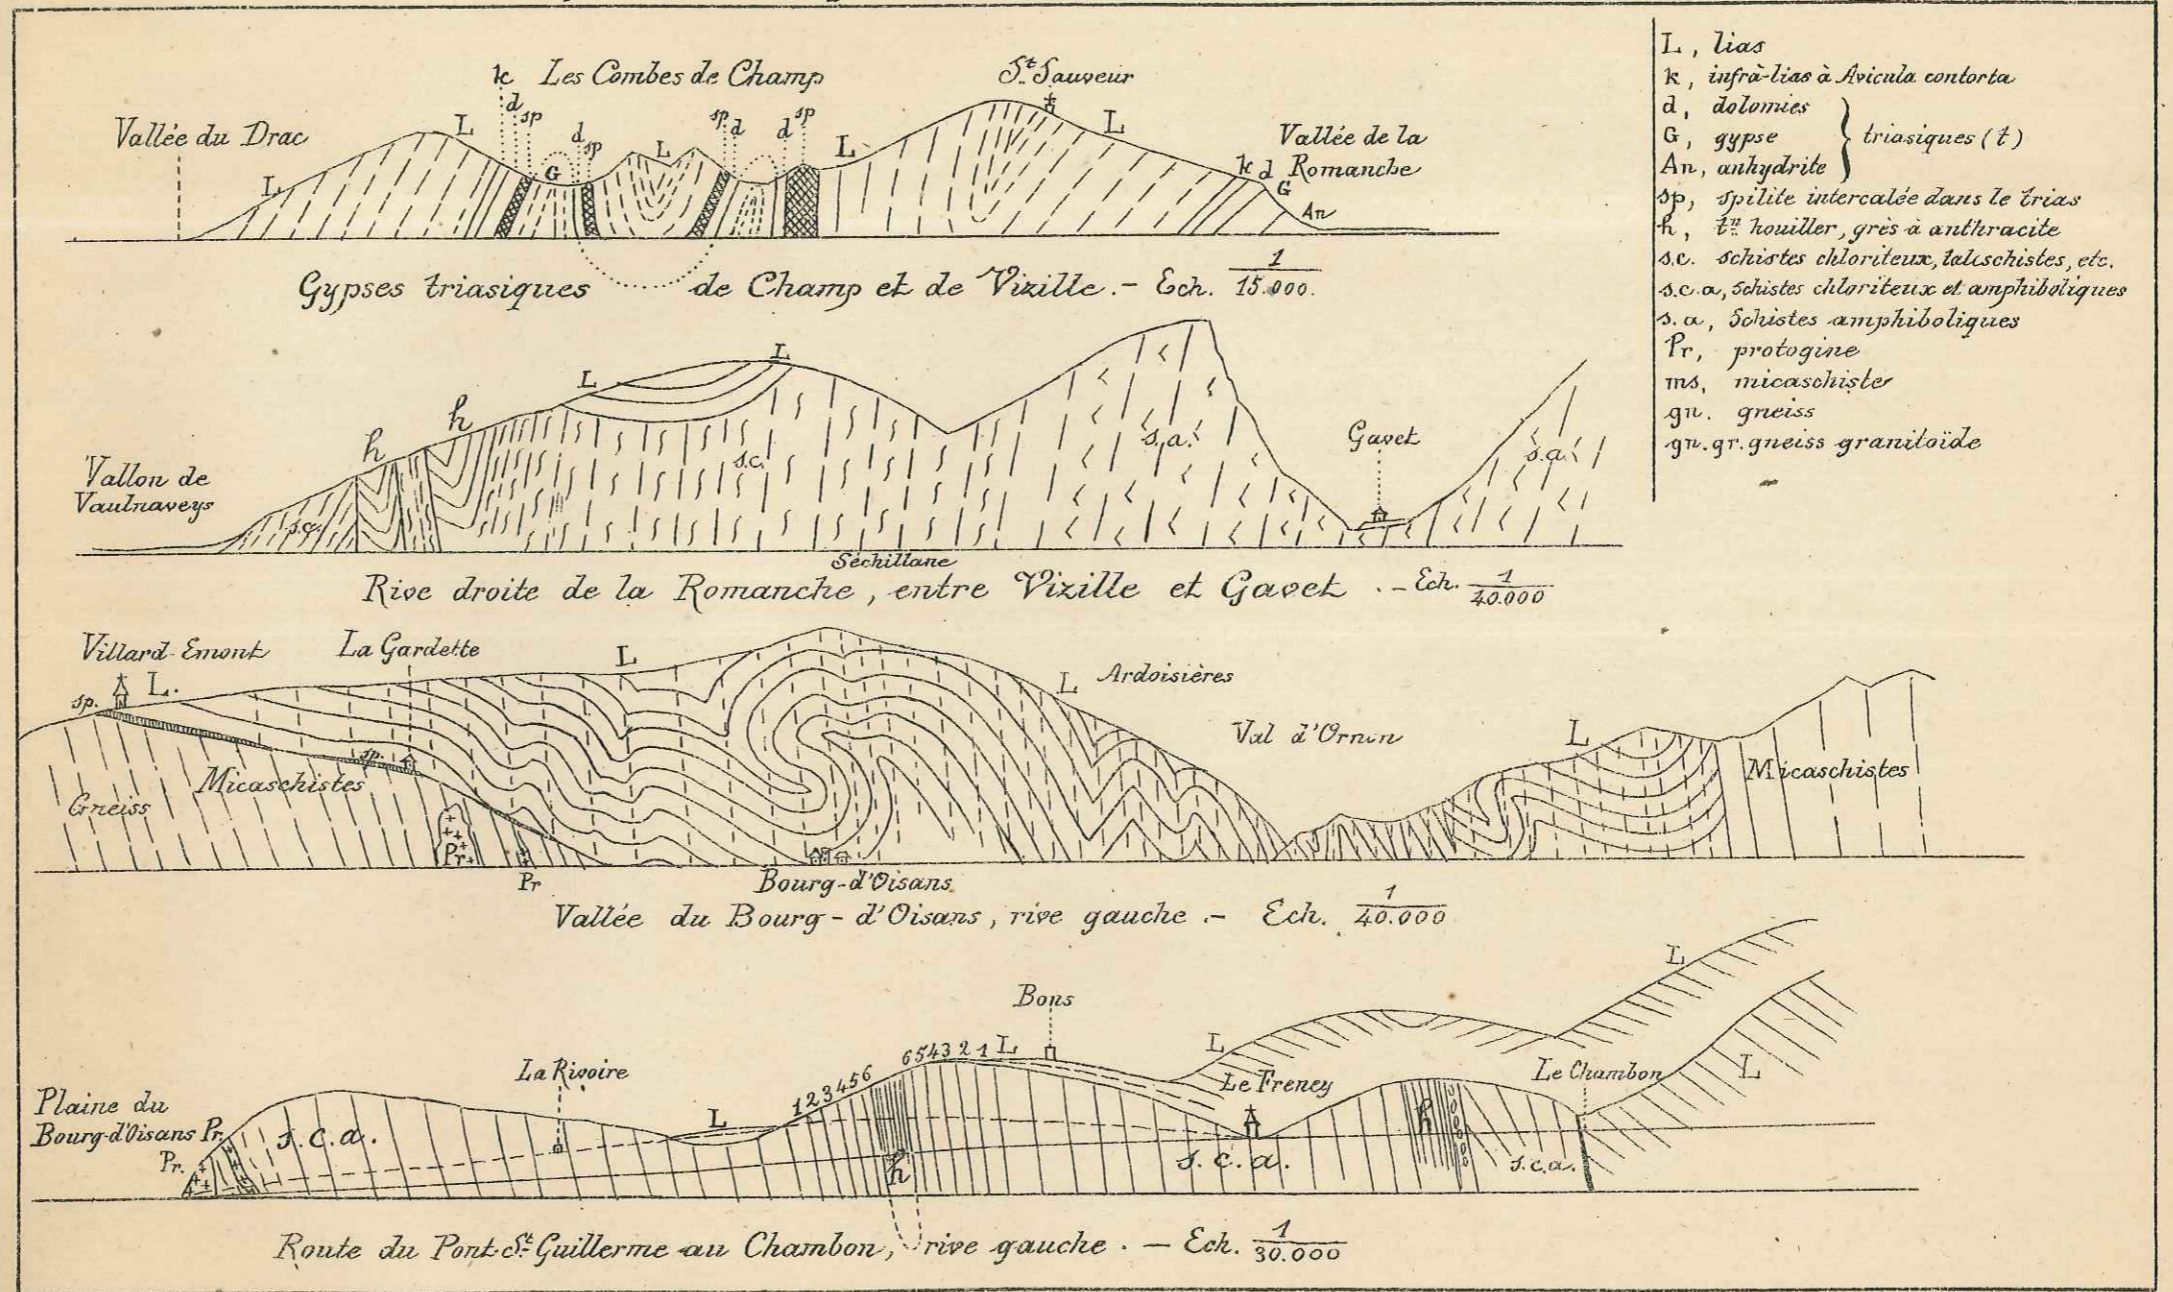 k Les Combes de Champ
St Sauveur
Vallée du Drac
L
L
d
sp
d
sp
G
L
sp
d
d
sp
L
L
Vallée de la
Romanche
k d
G
An
Gypses triasiques de Champ et de Vizille. - Ech. 1/15.000.
L, lias
k, infrà-lias à Avicula contorta
d, dolomies
G, gypse
An, anhydrite
triasiques (t)
sp, spilite intercalée dans le trias
h, tn houiller, grès à anthracite
s.c. schistes chloriteux, talcschistes, etc.
s.c.a, Schistes chloriteux et amphiboliques
s.a, Schistes amphiboliques
Pr, protogine
ms, micaschiste
gn. gneiss
gn.gr. gneiss granitoïde
Vallon de
Vaulnaveys
s.c.
h
h
L
L
s.c.
s.a.
Gavet
s.a.
Séchillane
Rive droite de la Romanche, entre Vizille et Gavet. - Ech. 1/40.000
Villard-Emont
La Gardette
sp.
L.
L
L
Ardoisières
Val d'Ornon
L
sp.
Micaschistes
Gneiss
Micaschistes
Pr.
Pr
Bourg-d'Oisans
Vallée du Bourg-d'Oisans, rive gauche. - Ech. 1/40.000
Plaine du
Bourg-d'Oisans
Pr.
Pr.
s.c.a.
La Rivoire
L
1 2 3 4 5 6
6 5 4 3 2 1 L
Bons
h
L
Le Freney
s.c.a.
h
L
Le Chambon
L
s.c.a.
Route du Pont-St-Guillerme au Chambon, rive gauche. - Ech. 1/30.000